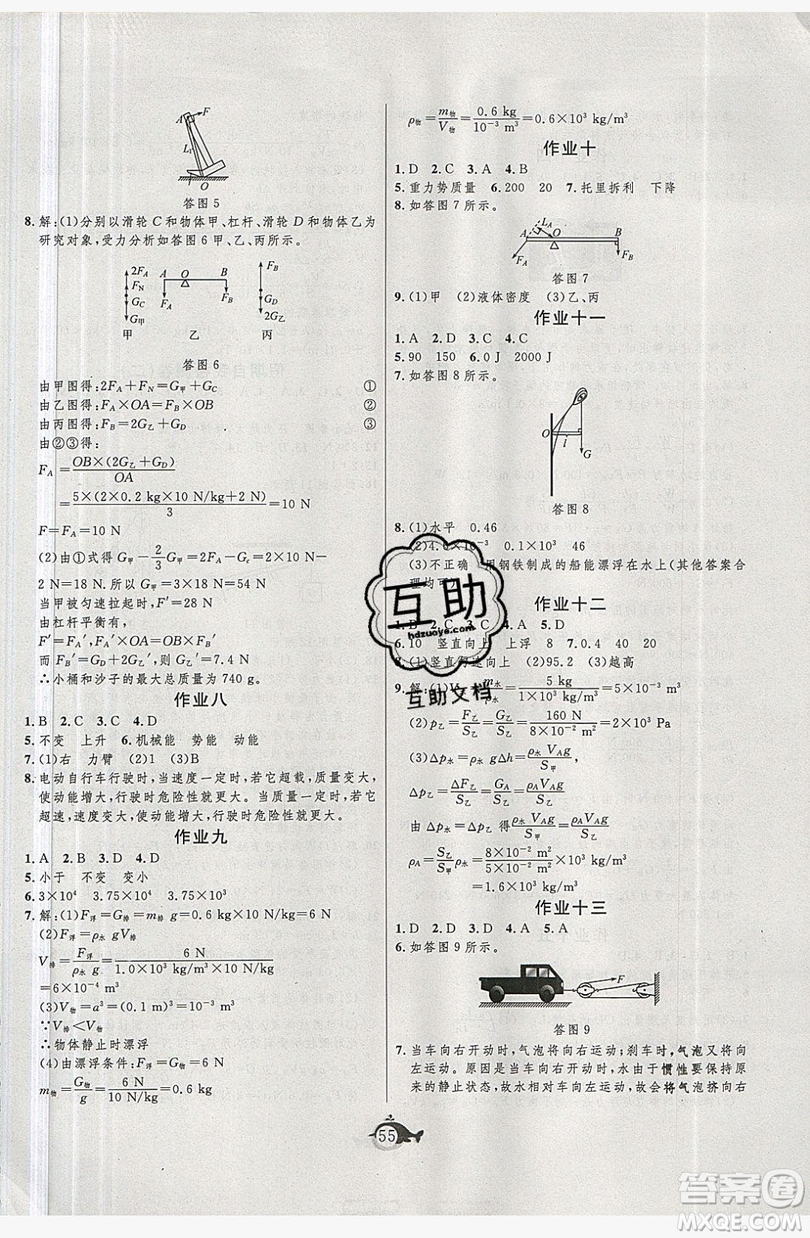 A
F
L₁
O
答图 5
8. 解:(1)分别以滑轮 C 和物体甲、杠杆、滑轮 D 和物体乙为
研究对象,受力分析如答图 6 甲、乙、丙所示。
2F_A
F_N
G_C
G_甲
甲
A O B
F_A F_B
乙
F_B
G_D
2G_乙
丙
答图 6
由甲图得:2F_A+F_N=G_甲+G_C ①
由乙图得:F_A×OA=F_B×OB ②
由丙图得:F_B=2G_乙+G_D ③
由②③得:
F_A=OB×(2G_乙+G_D)/OA
=5×(2×0.2 kg×10 N/kg+2 N)/3=10 N
F=F_A=10 N
(2)由①式得 G_甲-2/3 G_甲=2F_A-G_c=2×10 N-
2 N=18 N,所以 G_甲=3×18 N=54 N
当甲被匀速拉起时,
由杠杆平衡有,
F′=F_A′,F_A′×OA=F_B′×OB
而 F_B′=G
∴小桶和沙子的最大总质量为 740 g.
作业八
1. B 2. C 3. C 4. D
5. 不变 上升 6. 机械能 势能 动能
7. (1)右 力臂 (2)1 (3)B
8. 电动自行车行驶时,当速度一定时,若它超载,质量变大,
使动能增大,行驶时危险性更大。当质量一定时,若它
超速,速度变大,使动能增大,行驶时危险性更大。
作业九
1. A 2. B 3. D 4. D
5. 小于 不变 变小
6. 3×10⁴ 3.75×10⁴ 3.75×10⁴
7. 解:(1)F_浮=G_排=m_排 g=0.6 kg×10 N/kg=6 N
(2)F_浮=ρ_水 gV_排
V_排=F_浮/ρ_水g=6 N/1.0×10³ kg/m³×10 N/kg
=6×10⁻⁴ m³
(3)V_物=a³=(0.1 m)³=10⁻³ m³
∵V_排<V_物
∴物体静止时漂浮
(4)由漂浮条件:F_浮=G_物=6 N
m_物=G_物/g=6 N/10 N/kg=0.6 kg
ρ_物=m_物/V_物=0.6 kg/10⁻³ m³=0.6×10³ kg/m³
作业十
1. D 2. C 3. A 4. B
5. 重力势质量 6. 200 20 7. 托里拆利 下降
8. 如答图 7 所示。
A L_A O B
F_A F_B
答图 7
9. (1)甲 (2)液体密度 (3)乙、丙
作业十一
1. A 2. D 3. C 4. C
5. 90 150 6. 0 J 2000 J
7. 如答图 8 所示。
O l
G
答图 8
8. (1)水平 0.46
(2)4.6×10⁻³ 0.1×10³ 46
(3)不正确 用钢铁制成的船能漂浮在水上(其他答案合
理均可)
作业十二
1. B 2. C 3. C 4. A 5. D
6. 10 竖直向上 上浮 8 7. 0.4 40 20
8. (1)竖直向上 (2)95.2 (3)越高
9. 解:(1)V_水=m_水/ρ_水=5 kg/1×10³ kg/m³=5×10⁻³ m³
(2)p_乙=F_乙/S_乙=G_乙/S_乙=160 N/8×10⁻² m²=2×10³ Pa
(3)Δp_水=ρ_水 gΔh=ρ_水 V_A g/S_甲
Δp_乙=ΔF_乙/S_乙=G_A/S_乙=ρ_A V_A g/S_乙
由 Δp_水=Δp_乙 得 ρ_水 V_A g/S_甲=ρ_A V_A g/S_乙
ρ_A=S_乙/S_甲 ρ_水=8×10⁻² m²/5×10⁻² m²×1×10³ kg/m³
=1.6×10³ kg/m³
作业十三
1. D 2. C 3. D 4. A 5. A
6. 如答图 9 所示。
F
答图 9
7. 当车向右开动时,气泡将向右运动;刹车时,气泡又将向
左运动。原因是车向右开动时,水由于惯性要保持原
来的静止状态,故水相对车向左运动,故会将气泡挤向右
55
互助
hdzuoye.com
互助文档
答案圈
MXQE.COM